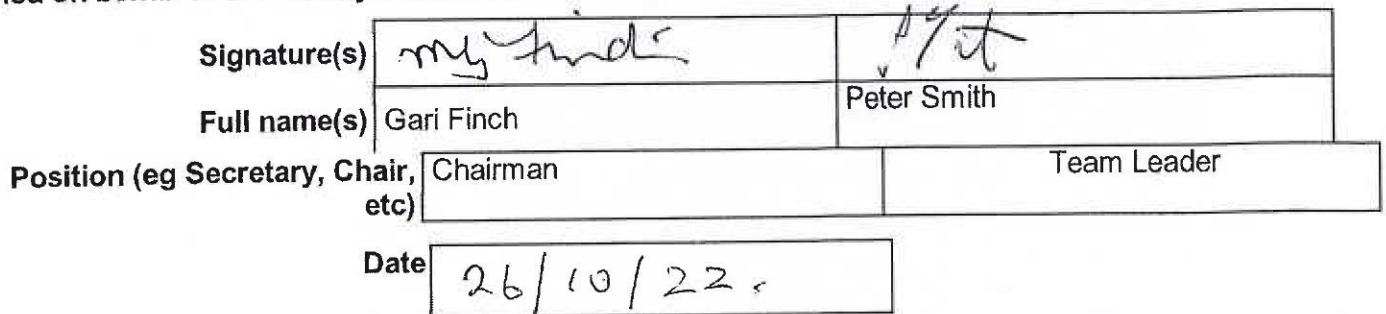 Signature(s)
Full name(s) Gari Finch Peter Smith
Position (eg Secretary, Chair, Chairman Team Leader
etc)
Date 26/10/22.